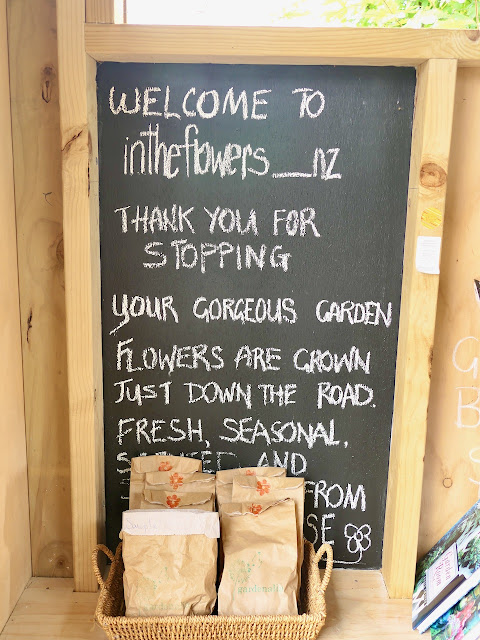 WELCOME TO
intheflowers__nz
THANK YOU FOR
STOPPING
YOUR GORGEOUS GARDEN
FLOWERS ARE GROWN
JUST DOWN THE ROAD.
FRESH, SEASONAL,
AND
FROM